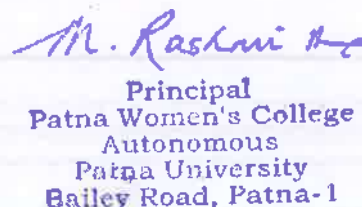 M. Rashmi A.C.
Principal
Patna Women's College
Autonomous
Patna University
Bailey Road, Patna-1